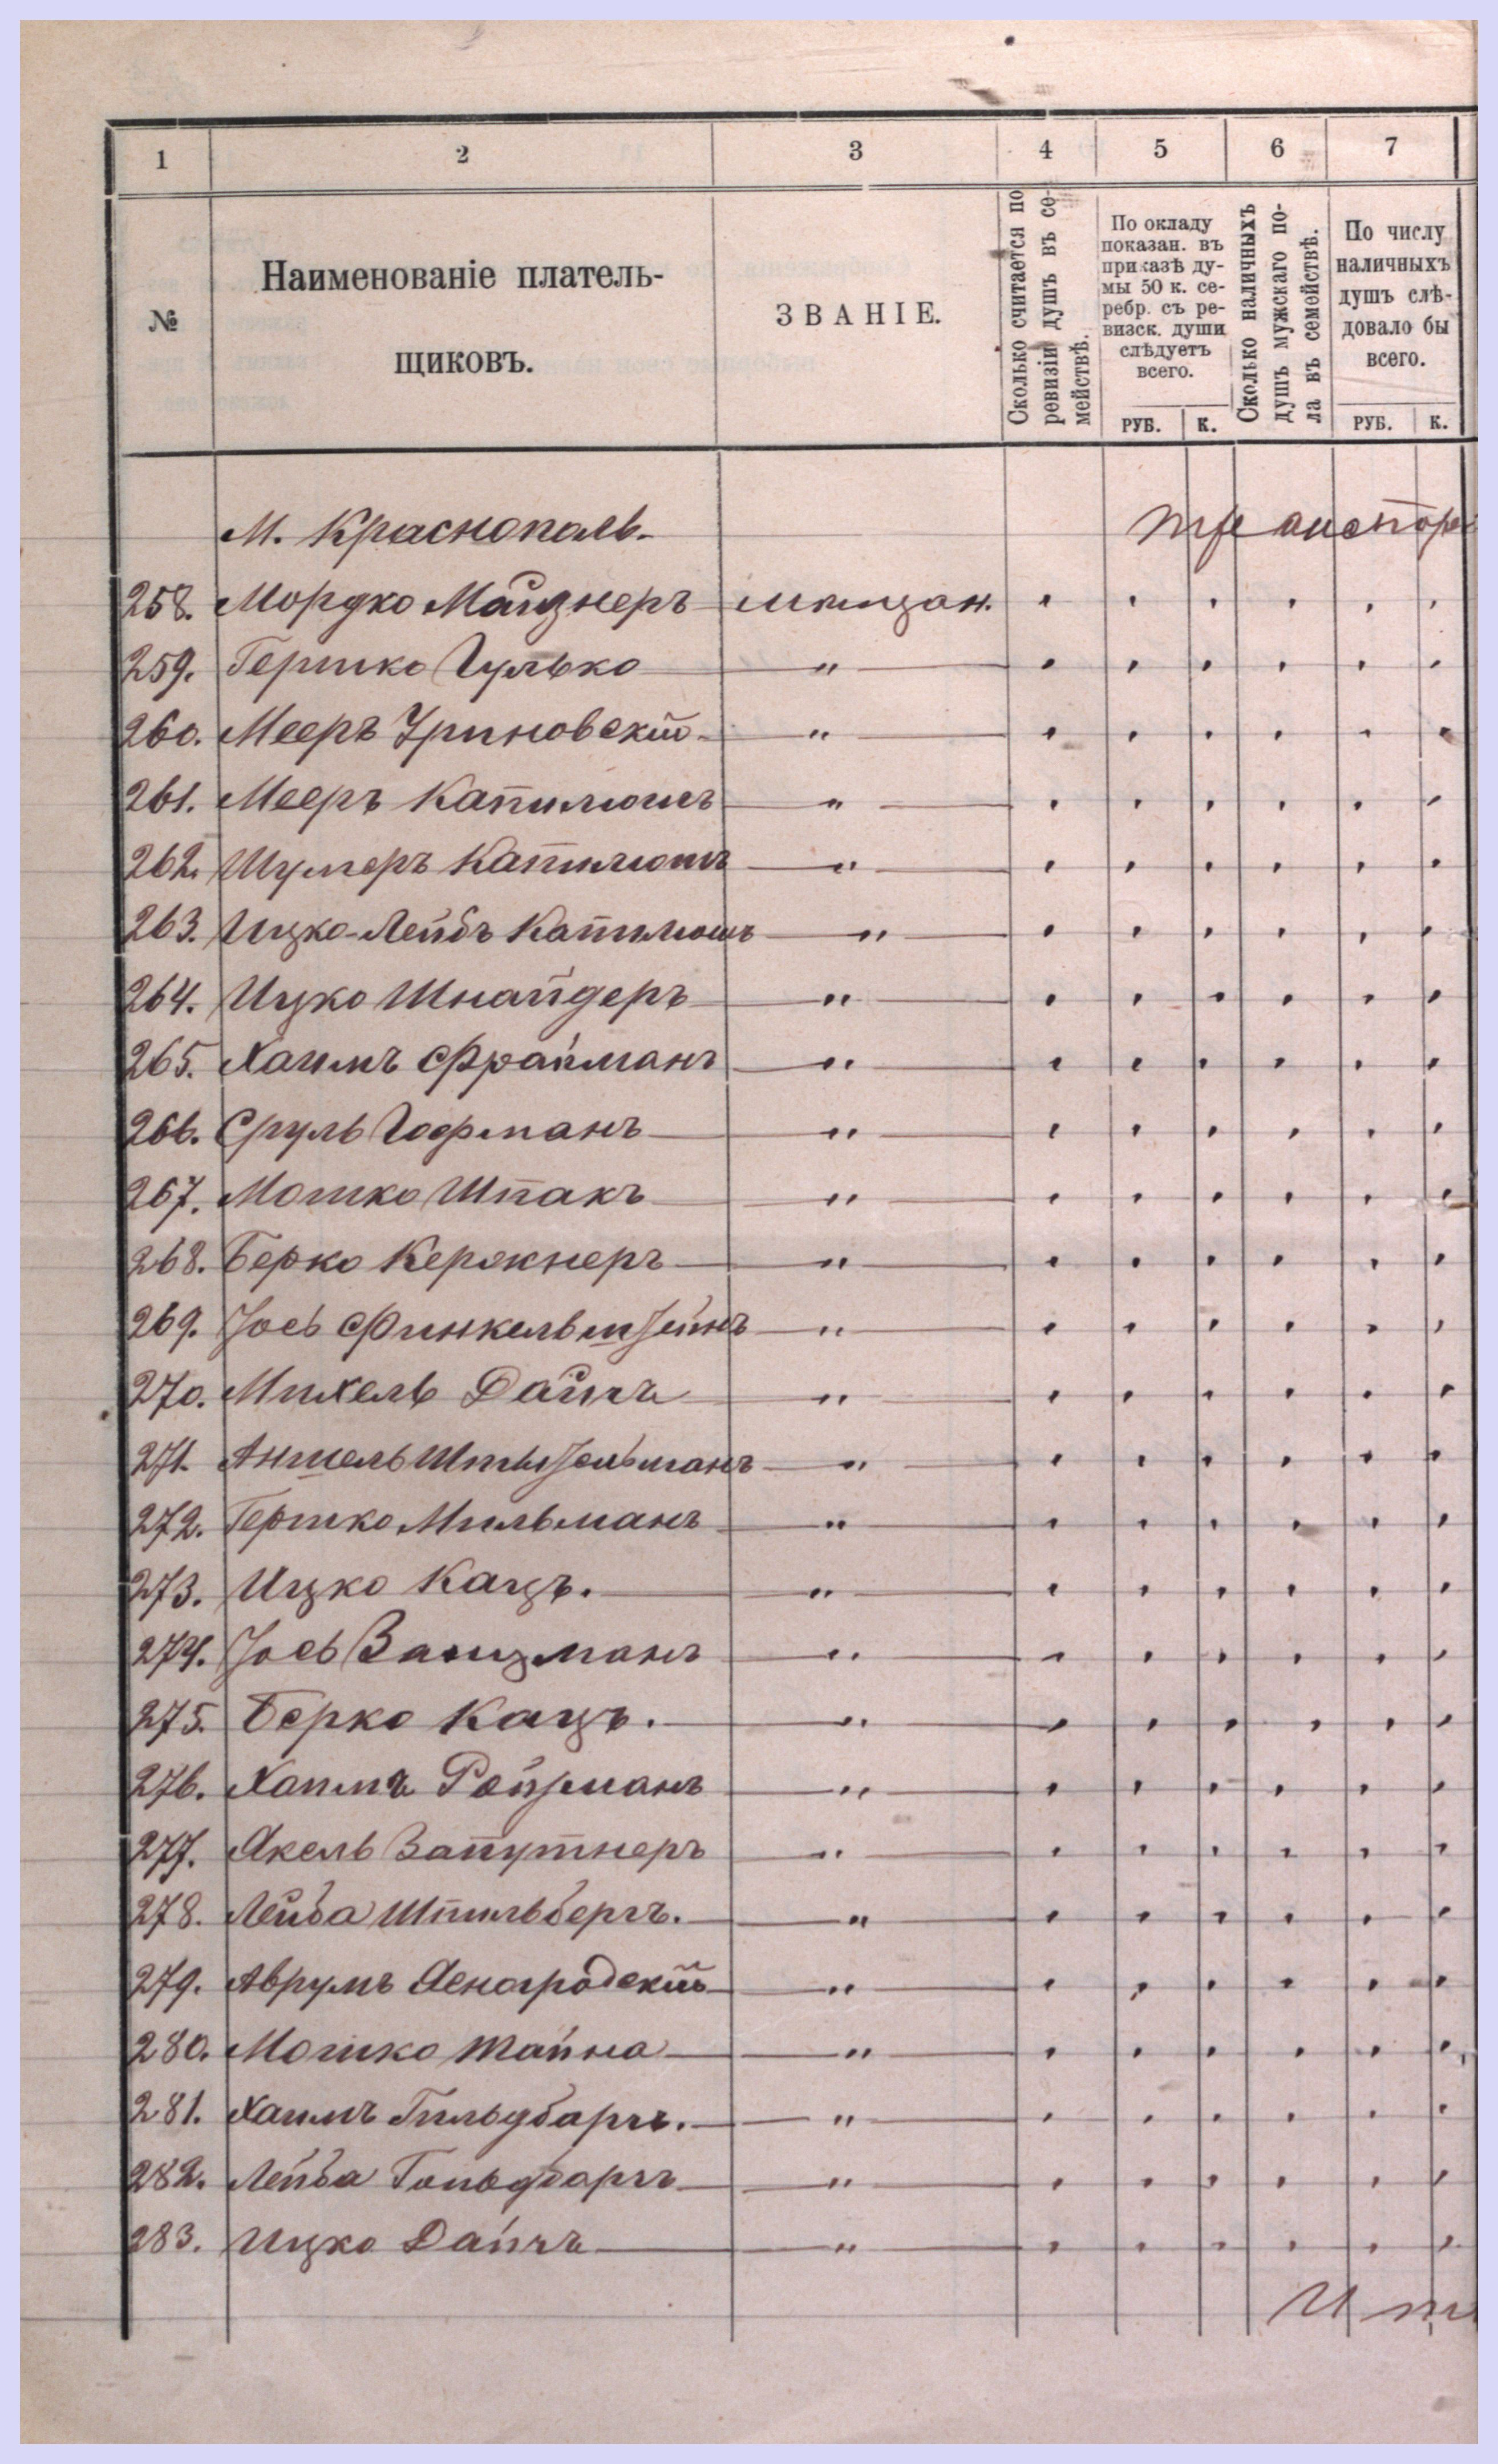 1 2 3 4 5 6 7
№
Наименованіе платель-
щиковъ.
ЗВАНІЕ.
Сколько считается по
ревизіи душъ въ се-
мействѣ.
По окладу
показан. въ
приказѣ ду-
мы 50 к. се-
ребр. съ ре-
визск. души
слѣдуетъ
всего.
РУБ. К.
Сколько наличныхъ
душъ мужскаго по-
ла въ семействѣ.
По числу
наличныхъ
душъ слѣ-
довало бы
всего.
РУБ. К.
М. Краснополь.
258. Мордко Майзнеръ мѣщан.
259. Гершко Гулько "
260. Мееръ Уриновскій "
261. Мееръ Капилюшъ "
262. Шулеръ Капилюшъ "
263. Ицко-Лейбъ Капилюшъ "
264. Ицко Шнайдеръ "
265. Хаимъ Фрайманъ "
266. Сруль Гофманъ "
267. Мошко Шпакъ "
268. Берко Кержнеръ "
269. Іось Финкельштейнъ "
270. Михель Дайчъ "
271. Аншель "
272. Гершко Мильманъ "
273. Ицко Кацъ. "
274. Іось Вайцманъ "
275. Берко Кацъ. "
276. Хаимъ Ройзманъ "
277. Якель Запутнеръ "
278. Лейба Шпильбергъ. "
279. Аврумъ Ясногродскій "
280. Мошко Тайна "
281. Хаимъ Гильдбаргъ. "
282. Лейба Гольдбаргъ "
283. Ицко Дайчъ "